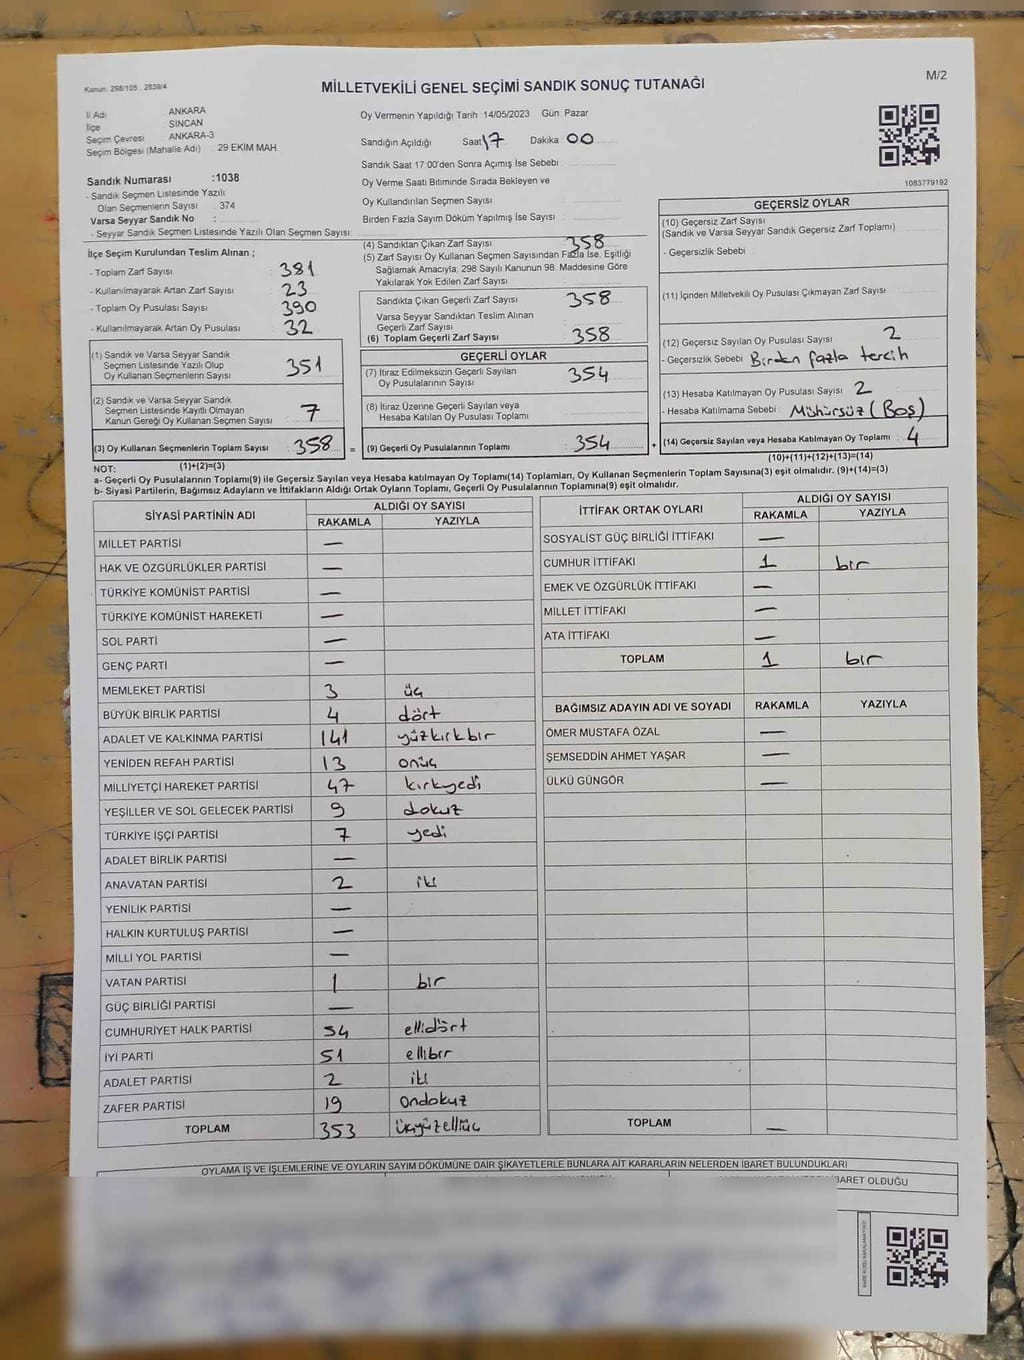 Kanun: 298/105 : 2839/4
MİLLETVEKİLİ GENEL SEÇİMİ SANDIK SONUÇ TUTANAĞI
M/2
İl Adı ANKARA
İlçe SİNCAN
Seçim Çevresi ANKARA-3
Seçim Bölgesi (Mahalle Adı) : 29 EKİM MAH
Sandık Numarası :1038
- Sandık Seçmen Listesinde Yazılı
Olan Seçmenlerin Sayısı : 374
Varsa Seyyar Sandık No :
- Seyyar Sandık Seçmen Listesinde Yazılı Olan Seçmen Sayısı:
Oy Vermenin Yapıldığı Tarih 14/05/2023 Gün: Pazar
Sandığın Açıldığı Saat 17 Dakika 00
Sandık Saat 17:00'den Sonra Açımış İse Sebebi :
Oy Verme Saati Bitiminde Sırada Bekleyen ve
Oy Kullandırılan Seçmen Sayısı :
Birden Fazla Sayım Döküm Yapılmış İse Sayısı :
1083779192
İlçe Seçim Kurulundan Teslim Alınan ;
- Toplam Zarf Sayısı : 381
- Kullanılmayarak Artan Zarf Sayısı : 23
- Toplam Oy Pusulası Sayısı : 390
- Kullanılmayarak Artan Oy Pusulası : 32
(1) Sandık ve Varsa Seyyar Sandık
Seçmen Listesinde Yazılı Olup
Oy Kullanan Seçmenlerin Sayısı : 351
(2) Sandık ve Varsa Seyyar Sandık
Seçmen Listesinde Kayıtlı Olmayan
Kanun Gereği Oy Kullanan Seçmen Sayısı : 7
(3) Oy Kullanan Seçmenlerin Toplam Sayısı : 358
(1)+(2)=(3)
(4) Sandıktan Çıkan Zarf Sayısı : 358
(5) Zarf Sayısı Oy Kullanan Seçmen Sayısından Fazla İse, Eşitliği
Sağlamak Amacıyla, 298 Sayılı Kanunun 98. Maddesine Göre
Yakılarak Yok Edilen Zarf Sayısı :
Sandıkta Çıkan Geçerli Zarf Sayısı : 358
Varsa Seyyar Sandıktan Teslim Alınan
Geçerli Zarf Sayısı :
(6) Toplam Geçerli Zarf Sayısı : 358
GEÇERLİ OYLAR
(7) İtiraz Edilmeksizin Geçerli Sayılan
Oy Pusulalarının Sayısı : 354
(8) İtiraz Üzerine Geçerli Sayılan veya
Hesaba Katılan Oy Pusulası Toplamı :
= (9) Geçerli Oy Pusulalarının Toplamı : 354 +
GEÇERSİZ OYLAR
(10) Geçersiz Zarf Sayısı
(Sandık ve Varsa Seyyar Sandık Geçersiz Zarf Toplamı) :
- Geçersizlik Sebebi :
(11) İçinden Milletvekili Oy Pusulası Çıkmayan Zarf Sayısı :
(12) Geçersiz Sayılan Oy Pusulası Sayısı : 2
- Geçersizlik Sebebi : Birden fazla tercih
(13) Hesaba Katılmayan Oy Pusulası Sayısı : 2
- Hesaba Katılmama Sebebi : Mühürsüz (Boş)
(14) Geçersiz Sayılan veya Hesaba Katılmayan Oy Toplamı : 4
(10)+(11)+(12)+(13)=(14)
NOT:
a- Geçerli Oy Pusulalarının Toplamı(9) ile Geçersiz Sayılan veya Hesaba katılmayan Oy Toplamı(14) Toplamları, Oy Kullanan Seçmenlerin Toplam Sayısına(3) eşit olmalıdır. (9)+(14)=(3)
b- Siyasi Partilerin, Bağımsız Adayların ve İttifakların Aldığı Ortak Oyların Toplamı, Geçerli Oy Pusulalarının Toplamına(9) eşit olmalıdır.
SİYASİ PARTİNİN ADI ALDIĞI OY SAYISI
RAKAMLA YAZIYLA
MİLLET PARTİSİ —
HAK VE ÖZGÜRLÜKLER PARTİSİ —
TÜRKİYE KOMÜNİST PARTİSİ —
TÜRKİYE KOMÜNİST HAREKETİ —
SOL PARTİ —
GENÇ PARTİ —
MEMLEKET PARTİSİ 3 üç
BÜYÜK BİRLİK PARTİSİ 4 dört
ADALET VE KALKINMA PARTİSİ 141 yüzkırkbir
YENİDEN REFAH PARTİSİ 13 onüç
MİLLİYETÇİ HAREKET PARTİSİ 47 kırkyedi
YEŞİLLER VE SOL GELECEK PARTİSİ 9 dokuz
TÜRKİYE İŞÇİ PARTİSİ 7 yedi
ADALET BİRLİK PARTİSİ —
ANAVATAN PARTİSİ 2 iki
YENİLİK PARTİSİ —
HALKIN KURTULUŞ PARTİSİ —
MİLLİ YOL PARTİSİ —
VATAN PARTİSİ 1 bir
GÜÇ BİRLİĞİ PARTİSİ —
CUMHURİYET HALK PARTİSİ 54 ellidört
İYİ PARTİ 51 ellibir
ADALET PARTİSİ 2 iki
ZAFER PARTİSİ 19 ondokuz
TOPLAM 353 üçyüzelliüç
İTTİFAK ORTAK OYLARI ALDIĞI OY SAYISI
RAKAMLA YAZIYLA
SOSYALİST GÜÇ BİRLİĞİ İTTİFAKI —
CUMHUR İTTİFAKI 1 bir
EMEK VE ÖZGÜRLÜK İTTİFAKI —
MİLLET İTTİFAKI —
ATA İTTİFAKI —
TOPLAM 1 bir
BAĞIMSIZ ADAYIN ADI VE SOYADI RAKAMLA YAZIYLA
ÖMER MUSTAFA ÖZAL —
ŞEMSEDDİN AHMET YAŞAR —
ÜLKÜ GÜNGÖR —
TOPLAM —
OYLAMA İŞ VE İŞLEMLERİNE VE OYLARIN SAYIM DÖKÜMÜNE DAİR ŞİKAYETLERLE BUNLARA AİT KARARLARIN NELERDEN İBARET BULUNDUKLARI
İBARET OLDUĞU